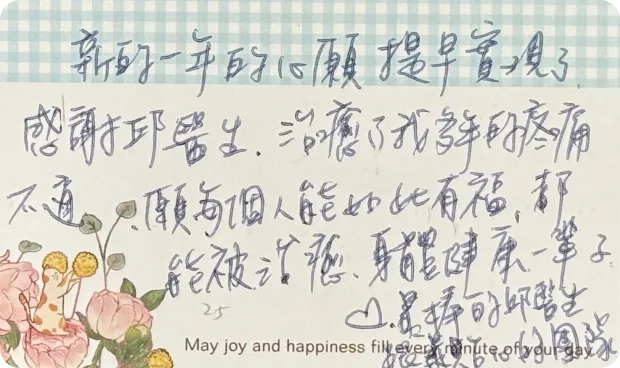 新的一年的心願提早實現了
感謝邱醫生.治癒了我多年的疼痛
不適.願每個人能如此有福,都
能被治癒.身體健康一輩子
25
♡.最棒的邱醫生
May joy and happiness fill every minute of your day